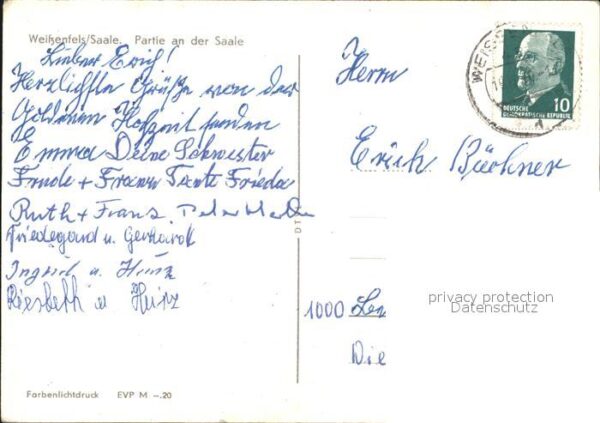 Weißenfels/Saale. Partie an der Saale
Lieber Erich!
Herzlichste Grüße von der
Goldenen Hochzeit senden
Emma Deine Schwester
Frude + Franz Tante Frieda
Ruth + Franz, Peter
Friedegard u. Gerhardt
Ingrid u. Heinz
Liesbeth u Heinz
Farbenlichtdruck EVP M –.20
Herrn
Erich Büchner
1000
Die
WEISSEN
DEUTSCHE
DEMOKRATISCHE REPUBLIK
10
privacy protection
Datenschutz